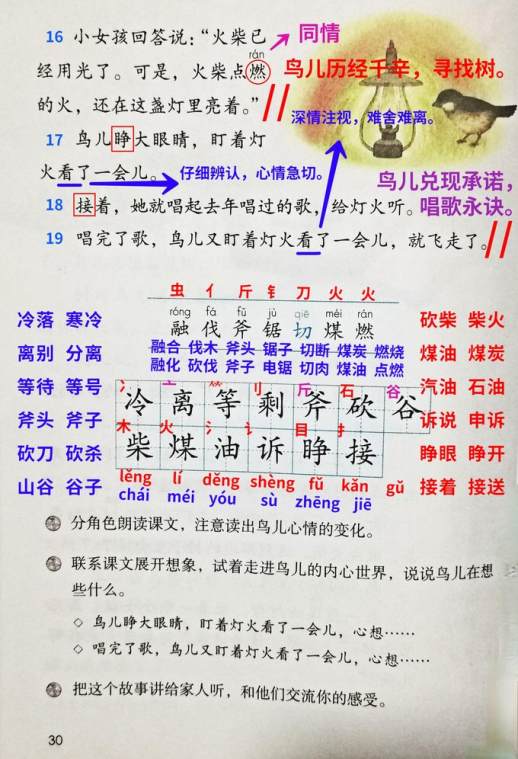 16 小女孩回答说：“火柴已 同情
rán
经用光了。可是，火柴点燃 鸟儿历经千辛，寻找树。
的火，还在这盏灯里亮着。” 深情注视，难舍难离。
17 鸟儿睁大眼睛，盯着灯
火看了一会儿。 仔细辨认，心情急切。
鸟儿兑现承诺，
唱歌永诀。
18 接着，她就唱起去年唱过的歌，给灯火听。
19 唱完了歌，鸟儿又盯着灯火看了一会儿，就飞走了。
虫 亻 斤 钅 刀 火 火
róng fá fǔ jù qiē méi rán
融 伐 斧 锯 切 煤 燃
融合 伐木 斧头 锯子 切断 煤炭 燃烧
融化 砍伐 斧子 电锯 切肉 煤油 点燃
冷落 寒冷
离别 分离
等待 等号
斧头 斧子
砍刀 砍杀
山谷 谷子
冫 亠 ⺮ 刂 斤 石 谷
冷 离 等 剩 斧 砍 谷
木 火 氵 讠 目 扌
柴 煤 油 诉 睁 接
lěng lí děng shèng fǔ kǎn gǔ
chái méi yóu sù zhēng jiē
砍柴 柴火
煤油 煤炭
汽油 石油
诉说 申诉
睁眼 睁开
接着 接送
分角色朗读课文，注意读出鸟儿心情的变化。
联系课文展开想象，试着走进鸟儿的内心世界，说说鸟儿在想
些什么。
◇ 鸟儿睁大眼睛，盯着灯火看了一会儿，心想……
◇ 唱完了歌，鸟儿又盯着灯火看了一会儿，心想……
把这个故事讲给家人听，和他们交流你的感受。
30